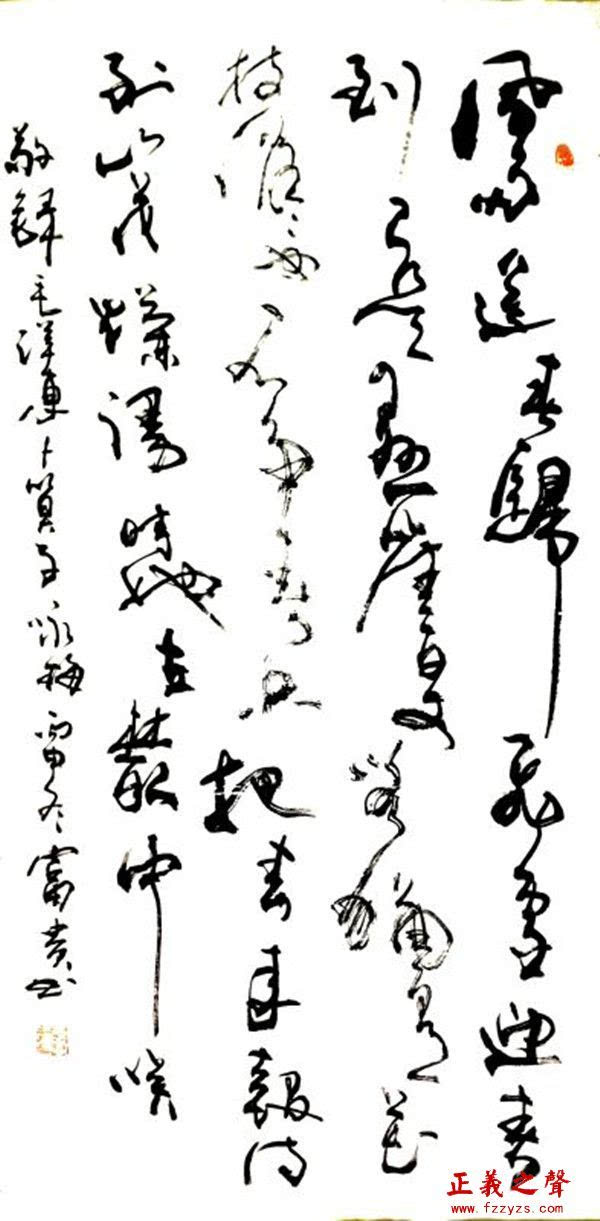 風雨送春歸飛雪迎春
到已是懸崖百丈冰猶有花
枝俏俏也不爭春只把春来報待
到山花爛漫時她在叢中咲
敬錄毛澤東卜算子咏梅丙申冬富貴书
正義之聲
www.fzzyzs.com